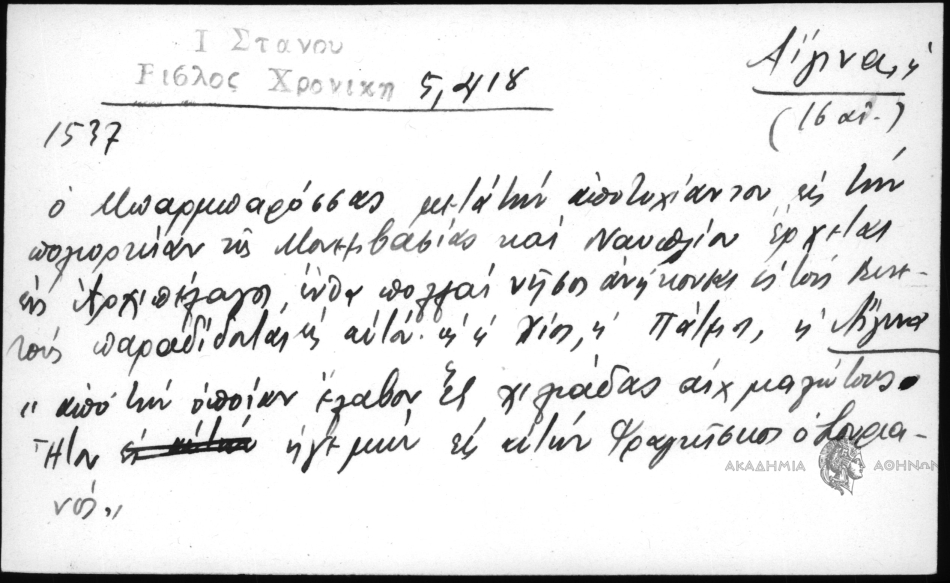 Ι Στανου
Βιβλος Χρονικη 5, 418
Αἴγινα, ἡ
(16 αἰ.)
1537
ὁ Μπαρμπαρόσσας μετά τήν ἀποτυχίαν του εἰς τήν
πολιορκίαν τῆς Μονεμβασίας καί Ναυπλίου ἔρχεται
εἰς Ἀρχιπέλαγος, ἔνθα πολλαί νῆσοι ἀνήκουσαι εἰς τούς Βενε-
τούς παραδίδονται εἰς αὐτόν. ἡ Χίος, ἡ Πάτμος, ἡ Αἴγινα
„ ἀπό τήν ὁποίαν ἔλαβον ἕξ χιλιάδας αἰχμαλώτους.
Ἦτον ἡγεμών εἰς αὐτήν Φραγκίσκος ὁ Σουρια-
νός „
ΑΚΑΔΗΜΙΑ ΑΘΗΝΩΝ